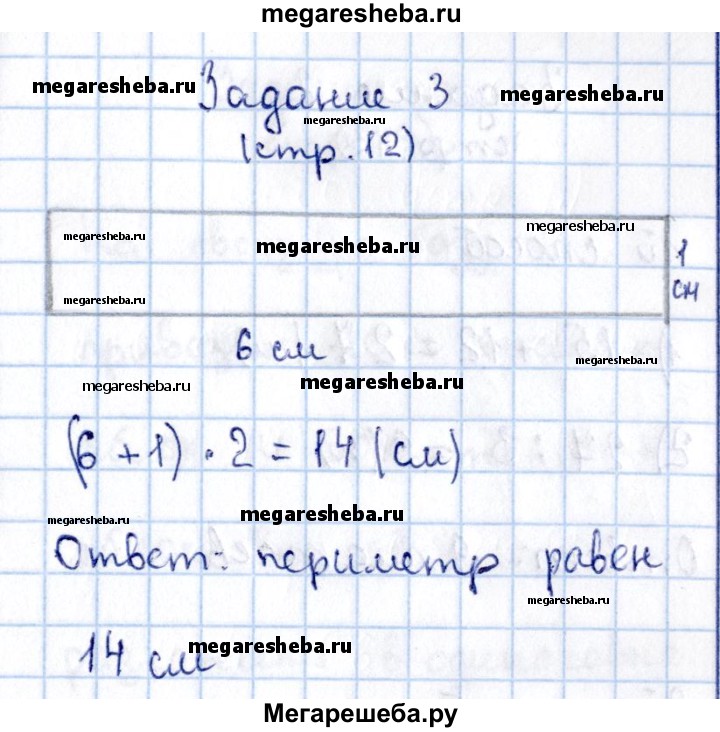 megaresheba.ru
megaresheba.ru Задание 3 megaresheba.ru
megaresheba.ru
(стр. 12)
megaresheba.ru
megaresheba.ru megaresheba.ru 1
megaresheba.ru см
6 см megaresheba.ru
megaresheba.ru megaresheba.ru
(6 + 1) · 2 = 14 (см)
megaresheba.ru megaresheba.ru
Ответ: периметр равен
megaresheba.ru
14 см megaresheba.ru
Мегарешеба.ру